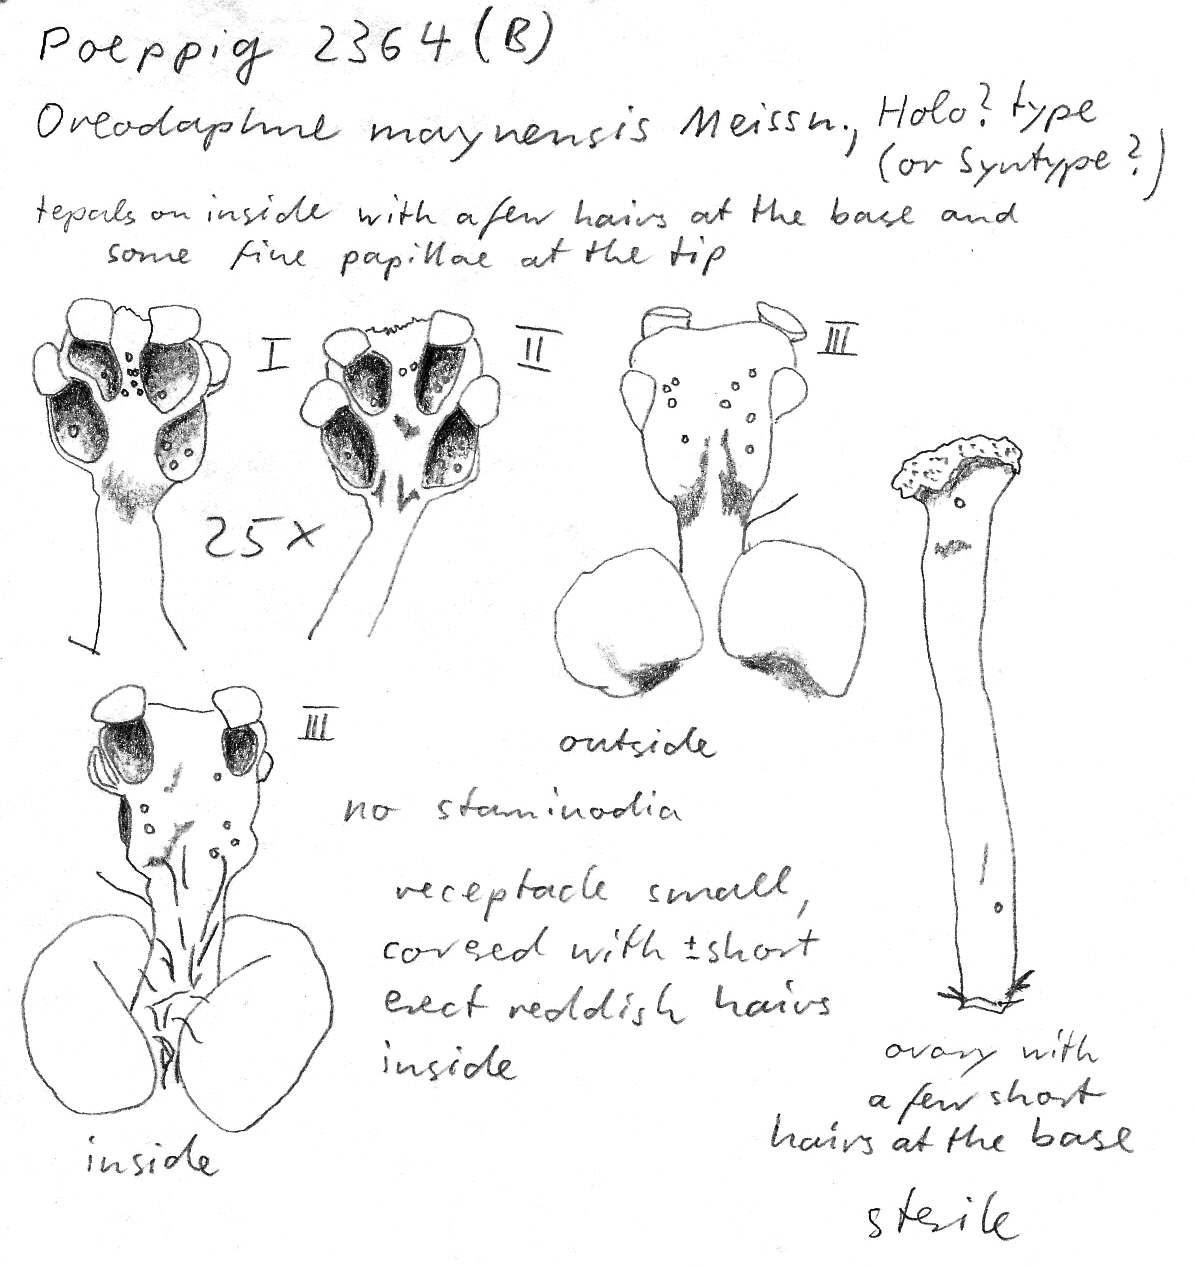 Poeppig 2364 (B)
Oreodaphne maynensis Meissn., Holo? type
(or Syntype?)
tepals on inside with a few hairs at the base and
some fine papillae at the tip
I
II
III
25x
III
outside
no staminodia
receptacle small,
covered with ± short
erect reddish hairs
inside
inside
ovary with
a few short
hairs at the base
sterile